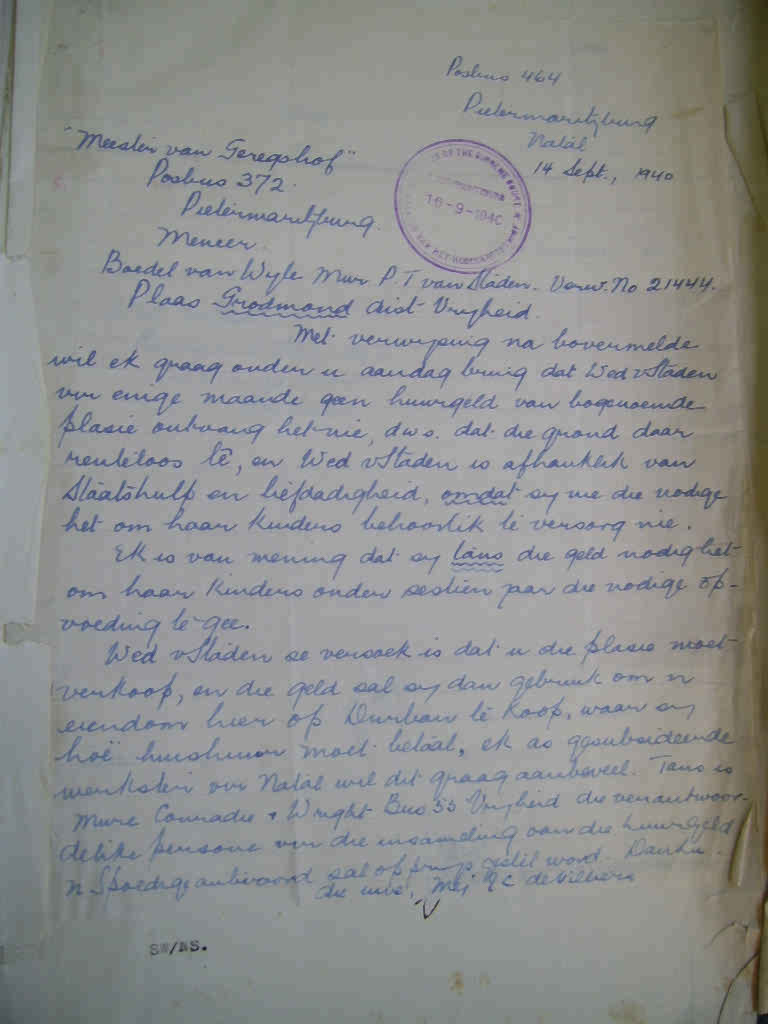 Posbus 464
Pietermaritzburg
Natal
14 Sept., 1940
"Meester van Geregshof"
Posbus 372.
Pietermaritzburg.
Meneer.
16-9-1940
Boedel van Wyle Mnr P. T van Staden. Verw. No 21444.
Plaas Grodmond dist Vryheid.
Met verwysing na bovermelde
wil ek graag onder u aandag bring dat Wed vStaden
vir enige maande geen huurgeld van bogenoemde
plasie ontvang het nie, d.w.s. dat die grond daar
renteloos lê, en Wed vStaden is afhanklik van
Staatshulp en liefdadigheid, omdat sy nie die nodige
het om haar kinders behoorlik te versorg nie.
Ek is van mening dat sy tans die geld nodig het
om haar kinders onder sestien jaar die nodige op-
voeding te gee.
Wed vStaden se versoek is dat u die plasie moet
verkoop, en die geld sal sy dan gebruik om 'n
eiendom hier op Durban te koop, waar sy
hoë huishuur moet betaal, ek as gesubsideerde
werkster vir Natal wil dit graag aanbeveel. Tans is
Mnre Conradie & Wright Bus 55 Vryheid die verantwoor-
delike persone vir die insameling van die huurgeld
'n Spoedige antwoord sal op prys gestel word. Dankie.
die uwe, Mej M C de Villiers
SW/NS.